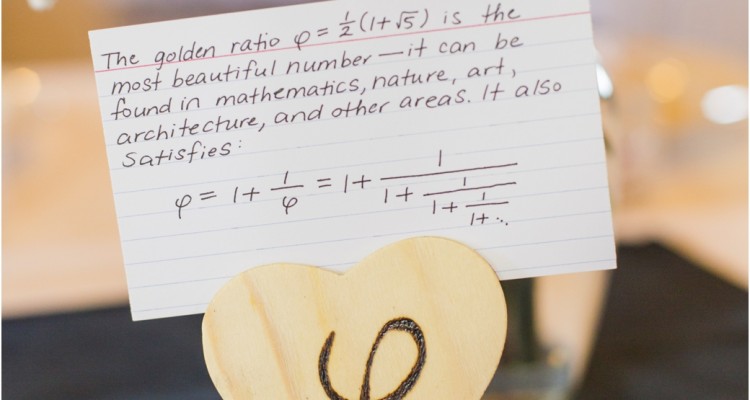 The golden ratio φ = 1/2 (1+√5) is the
most beautiful number — it can be
found in mathematics, nature, art,
architecture, and other areas. It also
satisfies:
φ = 1 + 1/φ = 1 + 1/(1 + 1/(1 + 1/(1 + ⋱)))
φ